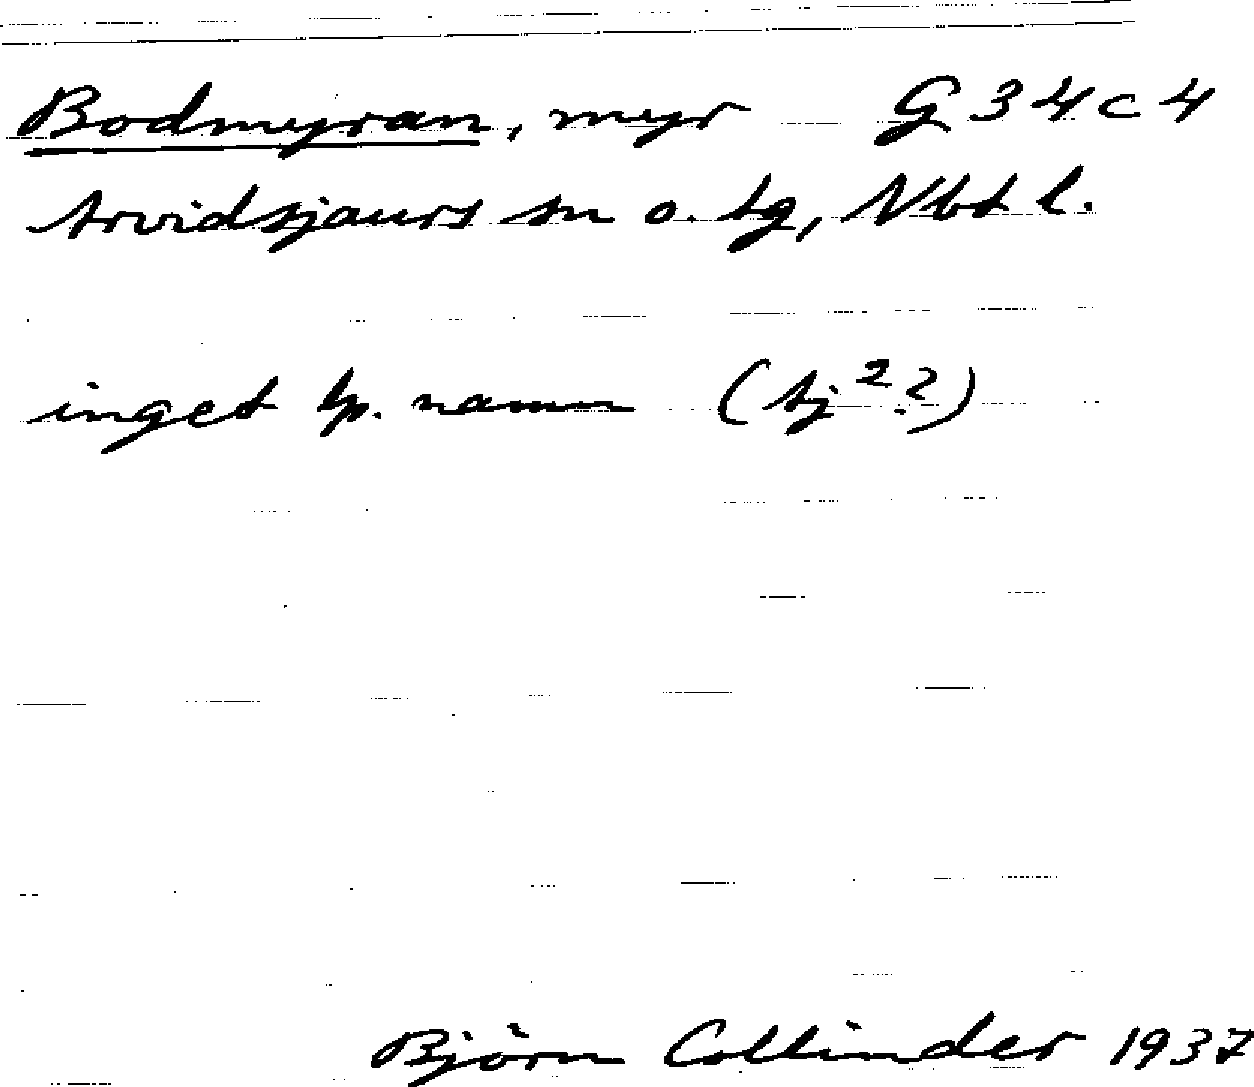 Bodmyran, myr G 34 c 4
Arvidsjaurs sn o. tg, Nbt l.
inget lp. namn
Björn Collinder 1937